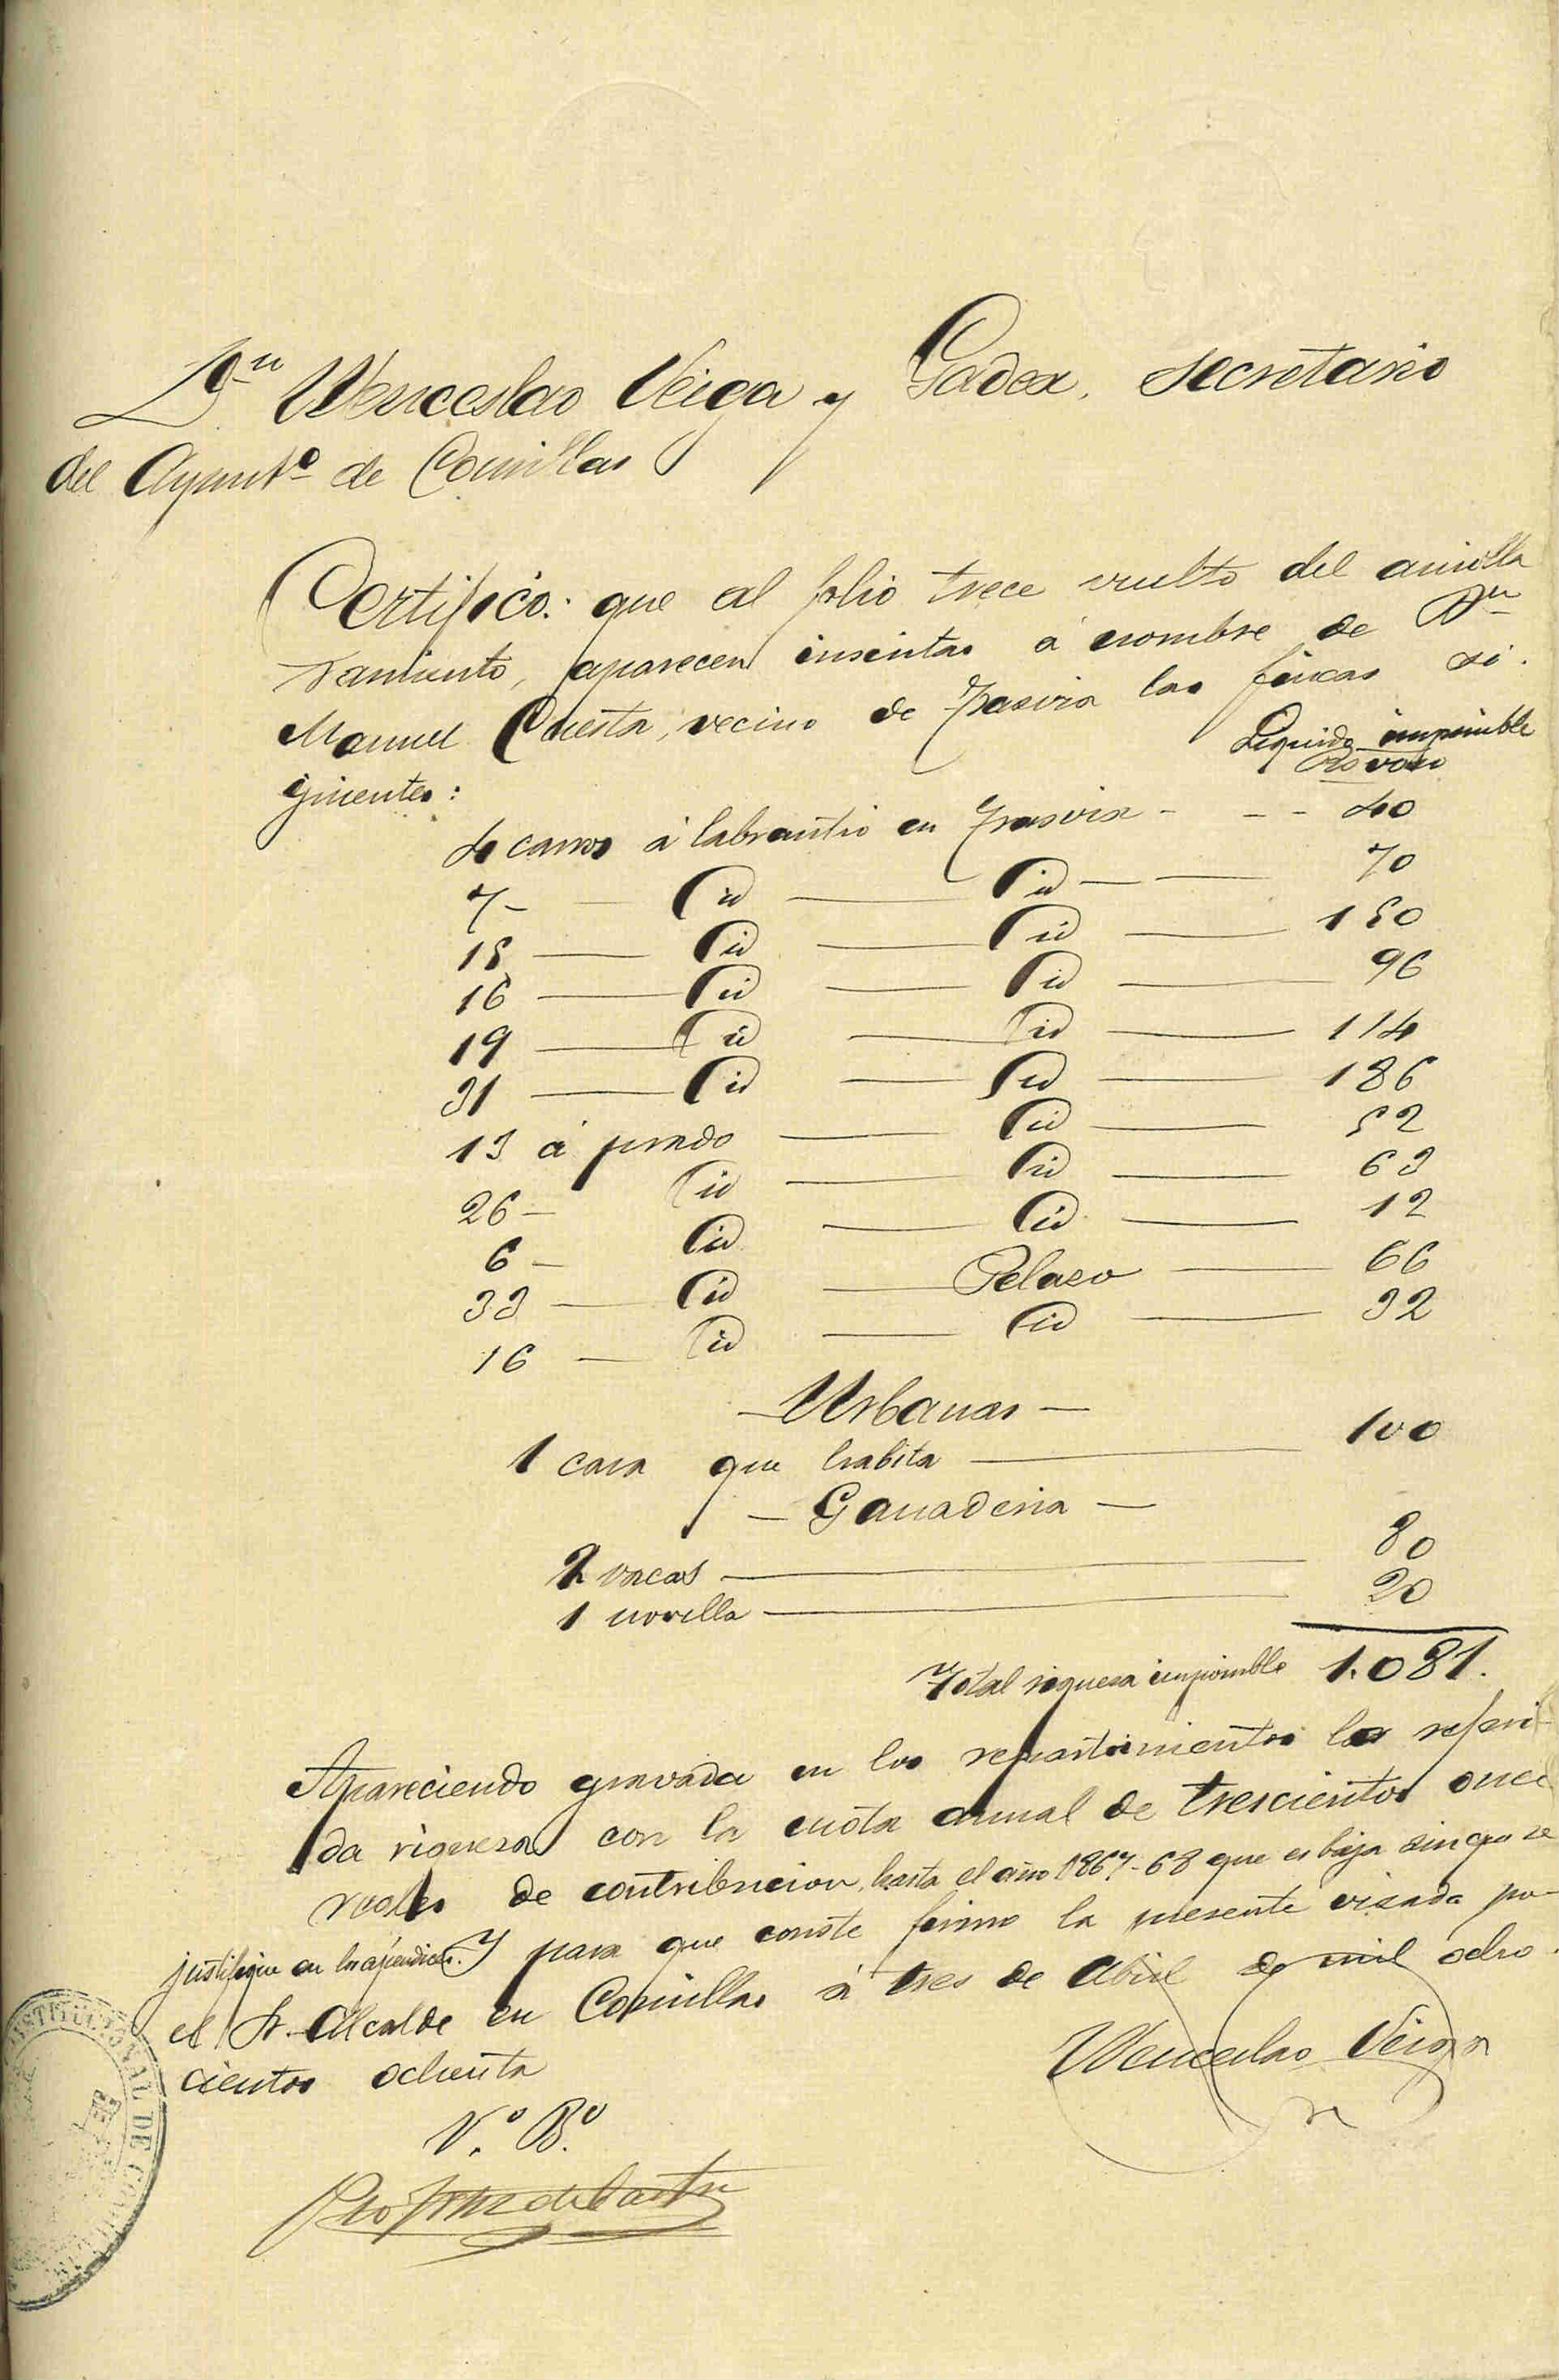 Dn Wenceslao Veiga y Gadea, secretario
del Ayuntº de Comillas
Certifico: que al folio trece vuelto del amilla
ramiento, aparecen inscritas á nombre de Dn
Manuel Cuesta, vecino de Trasvia las fincas si
guientes:
Liquido imponible
Rs von
4 carros á labrantio en Trasvia - - - 40
7 - id — id — 70
15 — id — id — 150
16 — id — id — 96
19 — id — id — 114
31 — id — id — 186
13 á prado — id — 52
26 - id — id — 63
6 - id — id — 12
33 — id — Pelazo — 66
16 — id — id — 32
— Urbanas —
1 casa que habita — 100
— Ganaderia —
2 vacas — 80
1 novilla — 20
Total riqueza imponible 1.081.
Apareciendo gravada en los repartimientos la referi-
da riqueza con la cuota anual de trescientos once
reales de contribucion, hasta el año 1867-68 que es baja sin que se
justifique en los apendices. Y para que conste firmo la presente visada por
el Sr. Alcalde en Comillas á tres de Abril de mil ocho
cientos ochenta
Wenceslao Veiga
V.º B.º